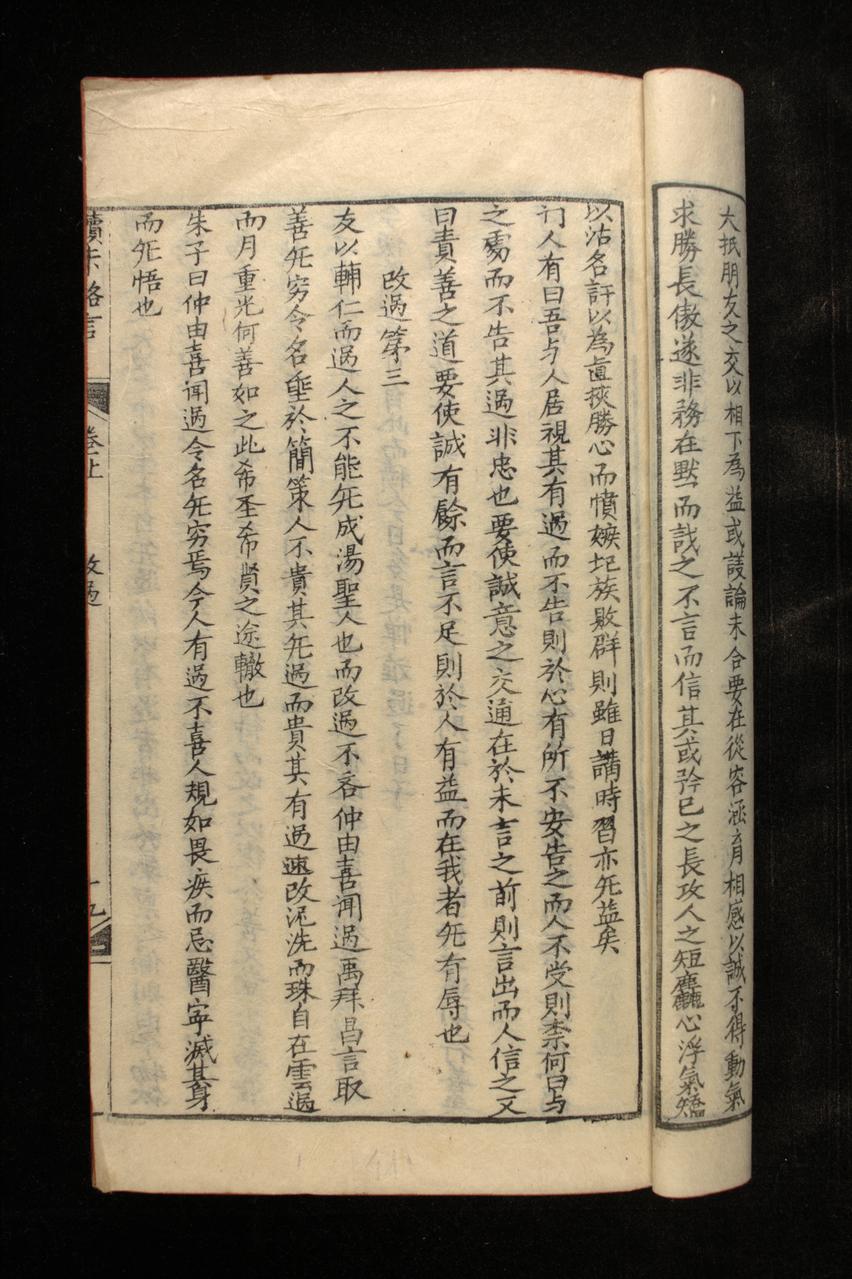 大抵朋友之交以相下為益或議論未合要在從容涵育相感以誠不得動氣
求勝長傲遂非務在默而識之不言而信其或矜己之長攻人之短麤心浮氣矯
以沽名訐以為直挾勝心而憤嫉圮族敗群則雖日講時習亦无益矣
门人有曰吾与人居視其有過而不告則於心有所不安告之而人不受則柰何曰与
之處而不告其過非忠也要使誠意之交通在於未言之前則言出而人信之又
曰責善之道要使誠有餘而言不足則於人有益而在我者无有辱也
改過第三
友以輔仁而過人之不能无成湯聖人也而改過不吝仲由喜闻過禹拜昌言取
善无穷令名垂於簡策人不貴其无過而貴其有過速改泥洗而珠自在雲過
而月重光何善如之此希圣希贤之途轍也
朱子曰仲由喜闻過令名无穷焉今人有過不喜人規如畏疾而忌醫寜滅其身
而无悟也
卷上
改過
十九